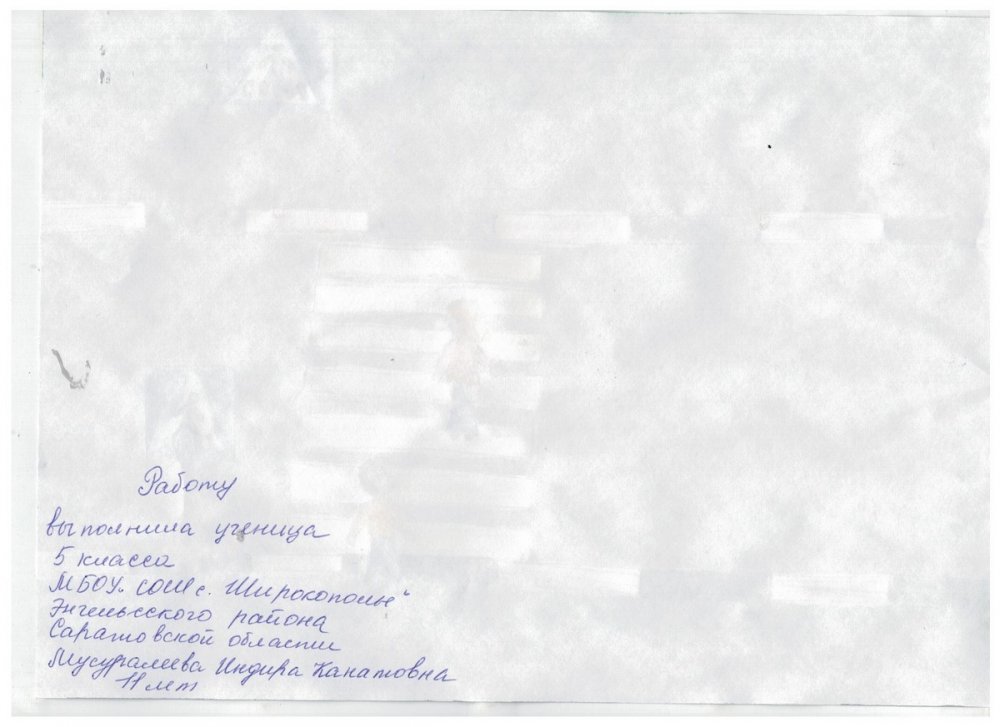 Работу
выполнила ученица
5 класса
МБОУ „ СОШ с. Широкополье“
Энгельсского района
Саратовской области
Мусуралиева Индира Канатовна
11 лет